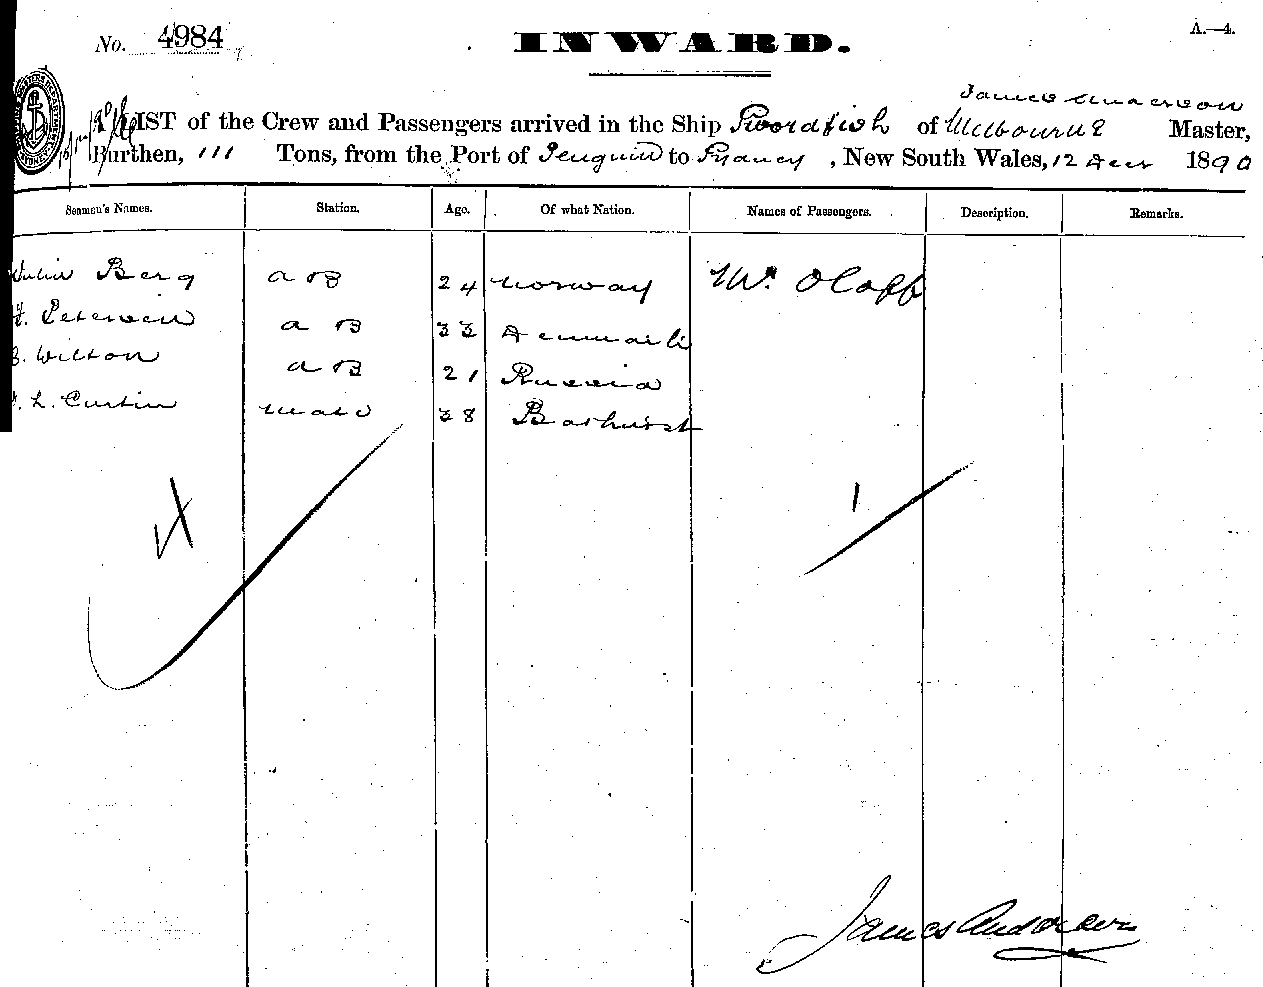 No. 4984
INWARD.
A.—4.
James Anderson
LIST of the Crew and Passengers arrived in the Ship Swordfish of Melbourne Master,
Burthen, 111 Tons, from the Port of Penguin to Sydney, New South Wales, 12 Decr 1890
Seamen's Names. Station. Age. Of what Nation. Names of Passengers. Description. Remarks.
Berg a B 24 Norway Mr. Oloff
Petersen a B 33 Denmark
Wilson a B 21 Russia
L. Curtin mate 38 Bathurst
1
James Anderson